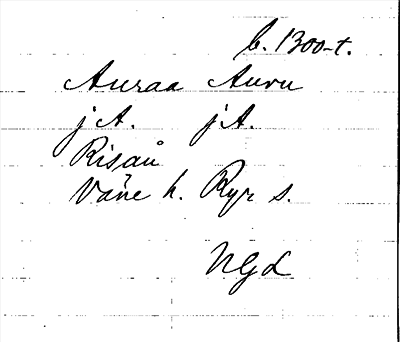 b. 1300-t.
Auraa Auru
jA. jA.
Risaå
Väne h. Ryr s.
NGd